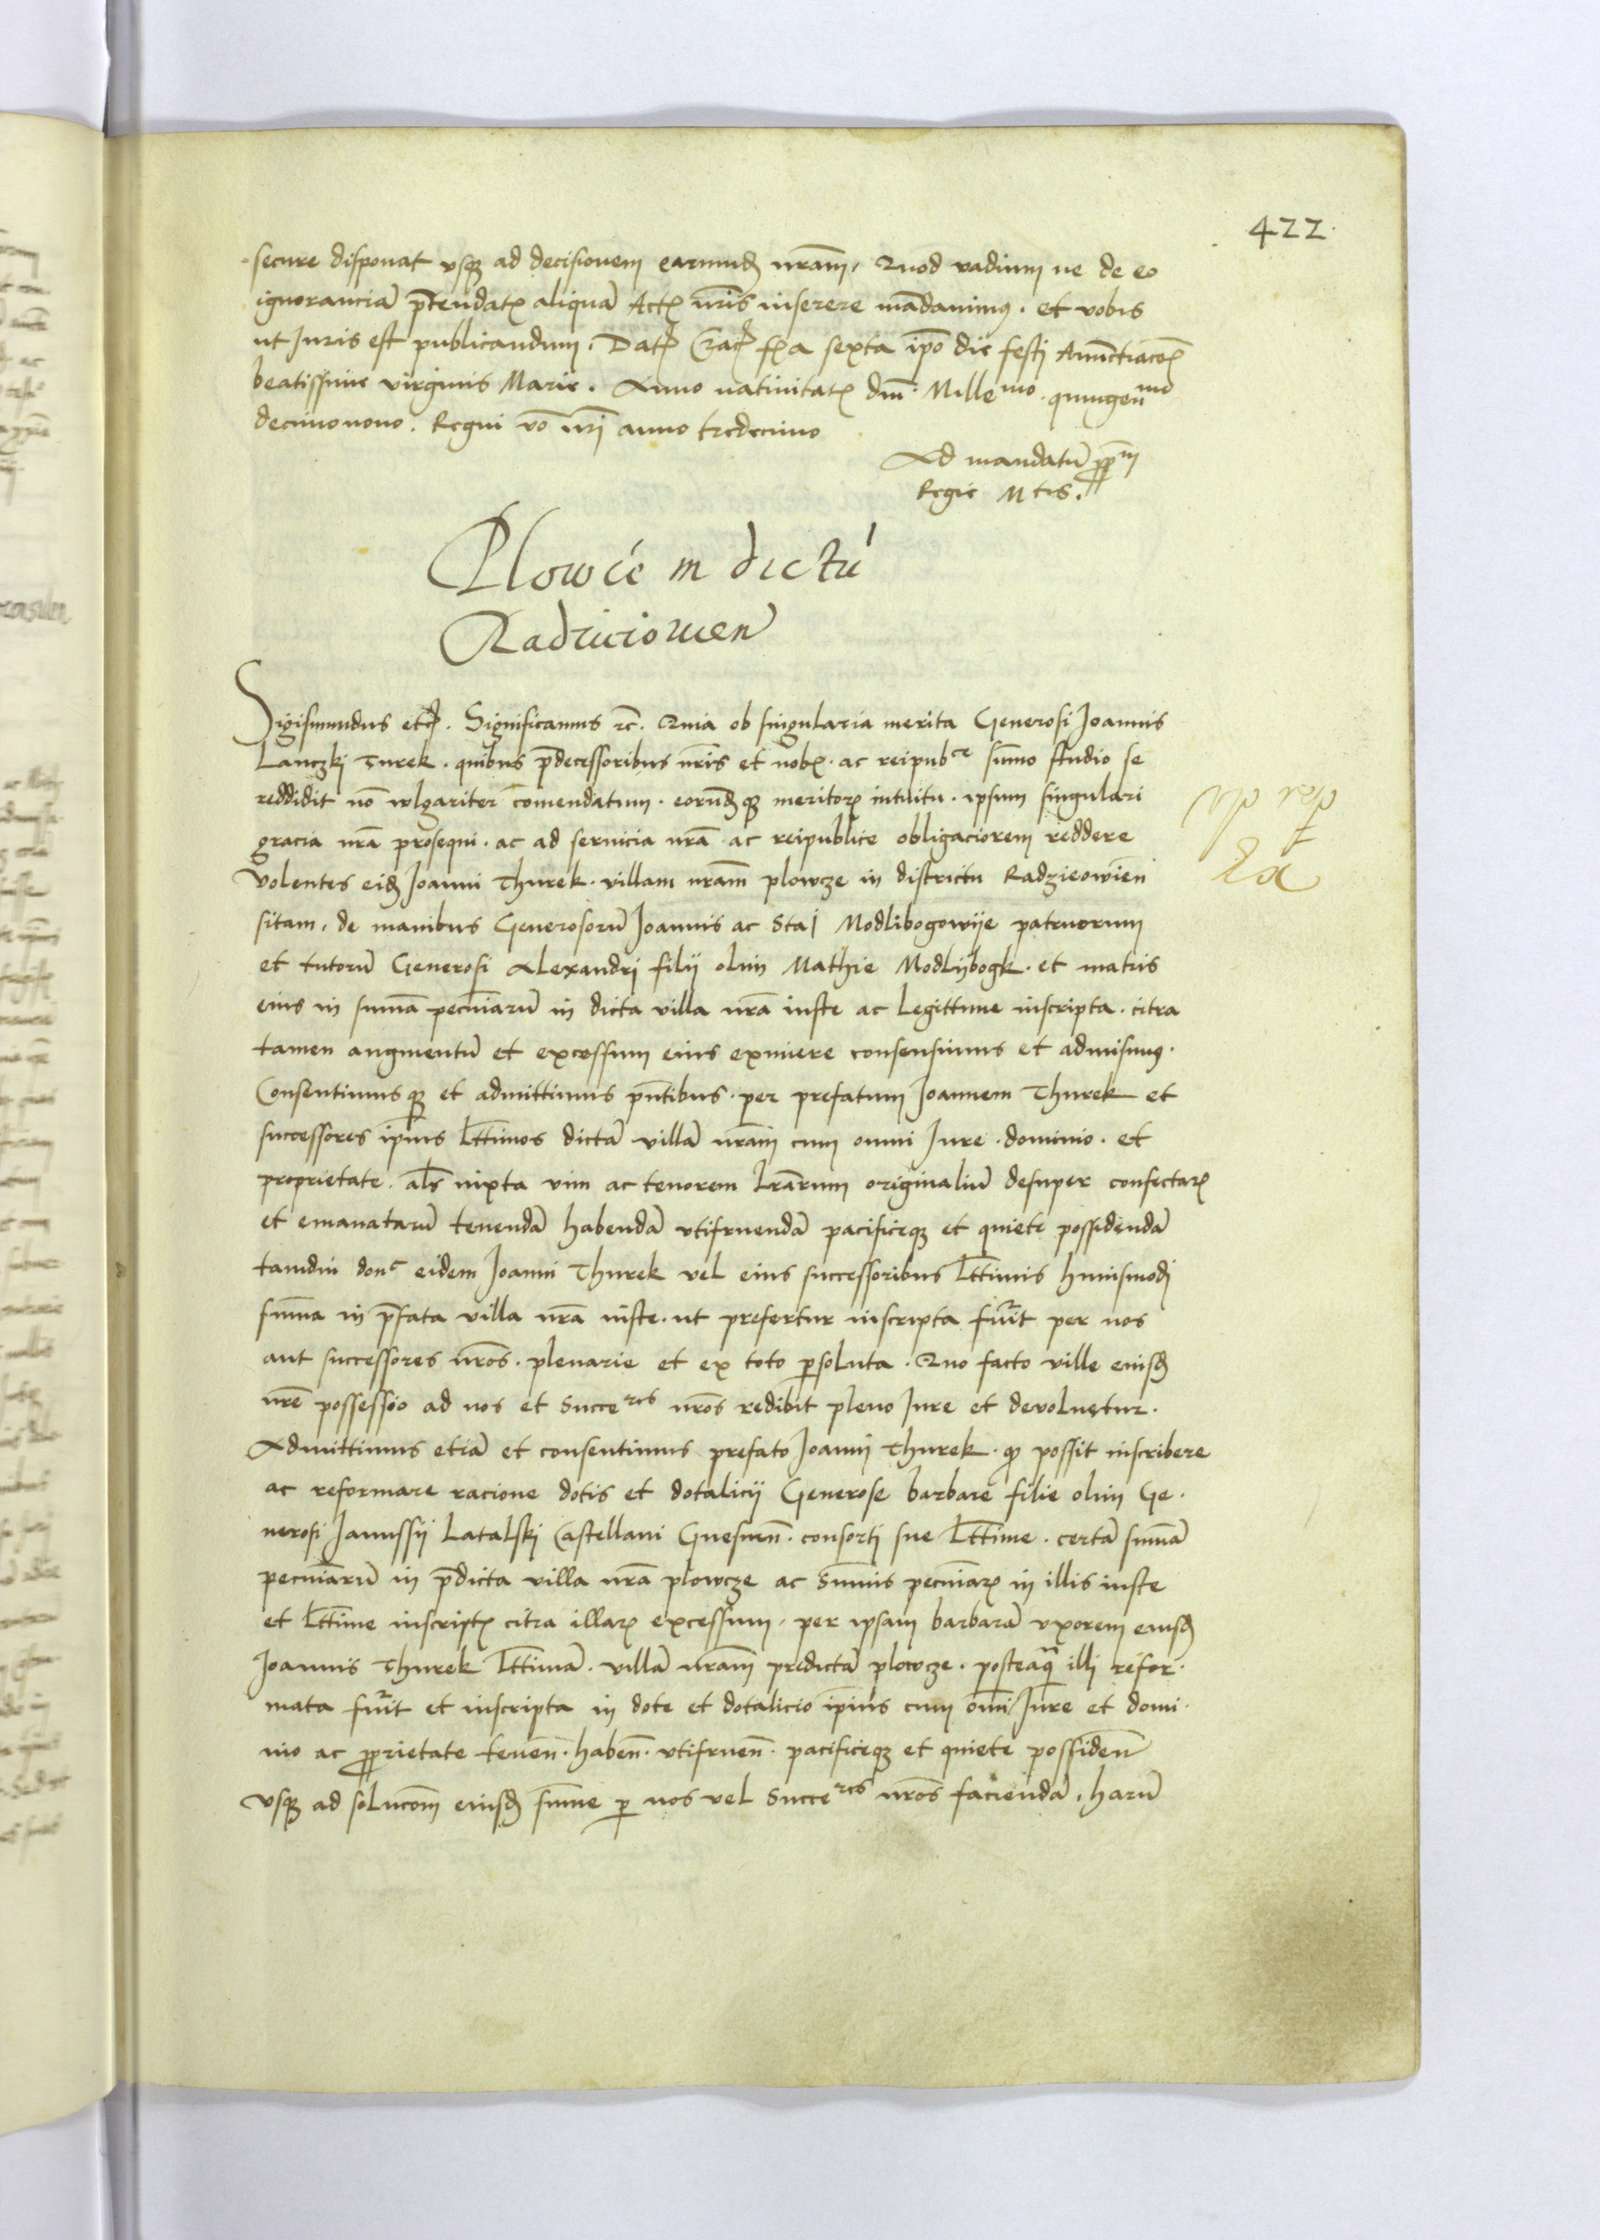 422.
secure disponat usq; ad decisionem earund nram, Quod vadium ne de eo
ignoranciã ptendatr aliquã Actis nris inserere mãdavimus. et vobis
ut Iuris est publicandum. Dat Crac fria sexta ipo die festi Anuncciacois
beatissime virginis Marie. Anno nativitatis dni Mille mo. quingen mo
decimonono. Regni vo nri anno tredecimo
Ad mandatũ ppm
Regie Mtis.
Plowcé in dictú
Radziciowien
Sigismundus etc. Significamus etc. Quia ob singularia merita Generosi Joannis
Lanczki Turek. quibus pdecessoribus nris et nobis. ac reipub ce sumo studio se
reddidit nõ wlgariter comendatum. eorund q; meritor intuitu. ipsum singulari
gracia nrã prosequi. ac ad servicia nrã ac reipublice obligaciorem reddere
Volentes eid Joanni Thurek. villam nram plowcze in districtu Radzieowien
sitam, de manibus Generosorũ Joannis ac Stai Modlibogowije patruorum
et tutorũ Generosi Alexandri filij olim Mathie Modlijbogk. et matris
eius in sumã pecuniarũ in dicta villa nrã iuste ac Legittime inscripta. citra
tamen augmentũ et excessum eius eximere consensimus et admisimus.
Consentimus q; et admittimus pntibus. per prefatum Joannem Thurek et
successores ipius Lttimos dictã villã nram cum omni Iure. dominio. et
proprietate. als iuxta vim ac tenorem Lrarum originaliũ desuper confectar
et emanatarũ tenendã habendã utifruendã pacificeq; et quiete possidendã
tamdiu donc eidem Joanni Thurek vel eius successoribus Lttimis huiusmodi
suma in pfata villa nrã iuste. ut prefertur inscripta fuit per nos
aut successores nros. plenarie et ex toto psoluta. Quo facto ville eiusd
nre possessio ad nos et Succe res nros redibit pleno Iure et devoluetur.
Admittimus etiã et consentimus prefato Joanni Thurek. q possit inscribere
ac reformare racione dotis et dotalicij Generose barbare filie olim Ge.
nerosi Janussij Latalski Castellani Gnesnen. consorti sue Lttime. certã sumã
pecuniarũ in pdicta villa nrã plowcze ac Sumis pecuniar in illis iuste
et Lttime inscriptis citra illar excessum, per ipsam barbarã uxorem eiusd
Joannis Thurek Lttimã. villã nram predictã plowcze. posteaq illi refor.
mata fuit et inscripta in dote et dotalicio ipius cum omi Iure et domi.
nio ac pprietate tenen. haben. utifruen. pacificeq; et quiete possiden
usq; ad solucom eiusd sume p nos vel Succe res nros faciendã, harũ